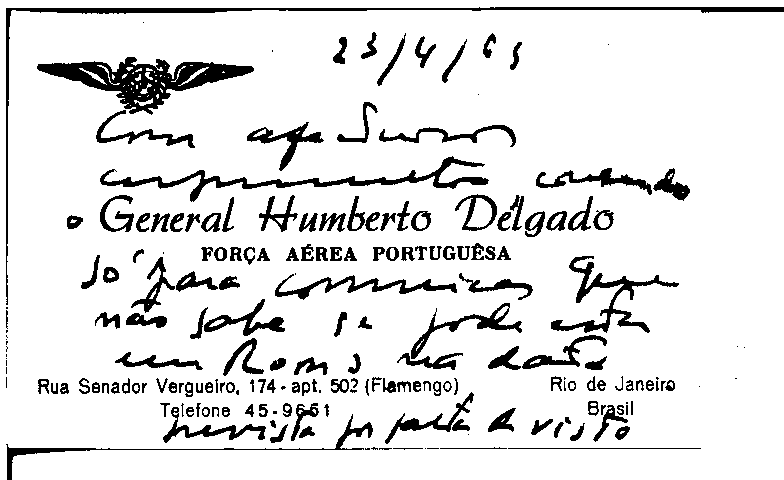 23/4/63
Com afectuosos
cumprimentos
o General Humberto Delgado
FORÇA AÉREA PORTUGUÊSA
só para comunicar que
não sabe se pode estar
em Roma na data
Rua Senador Vergueiro, 174 - apt. 502 (Flamengo) Rio de Janeiro
Telefone 45-9651 Brasil
prevista por falta de visto